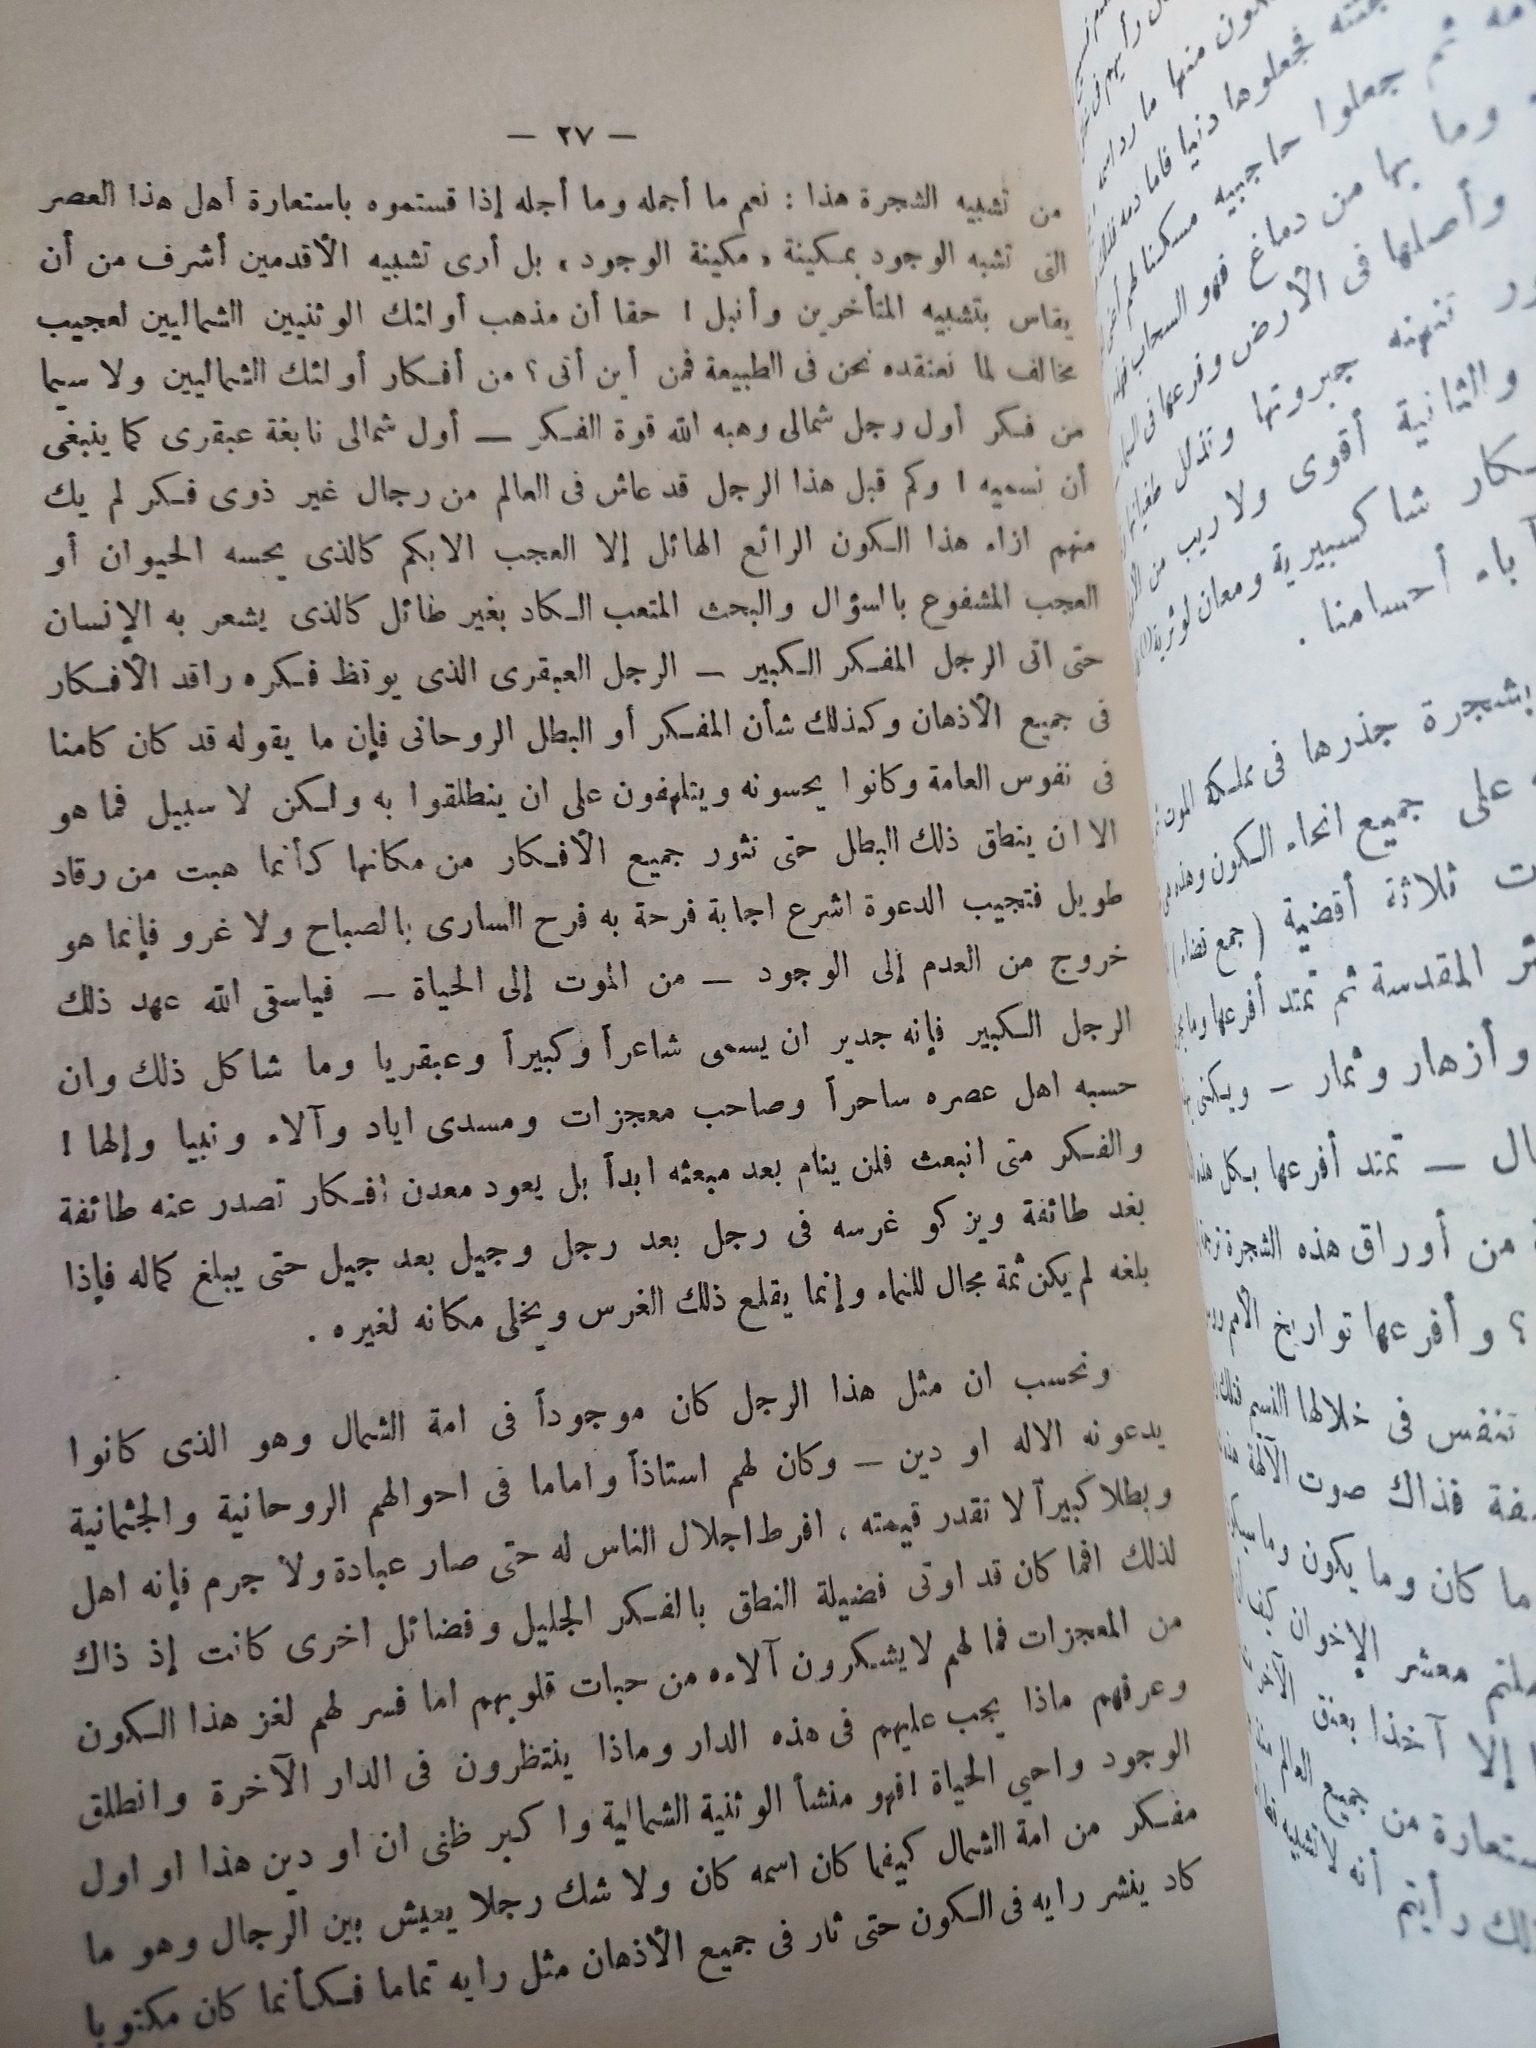 — ٢٧ —
من تشبيه الشجرة هذا : نعم ما أجمله وما أجله إذا قستموه باستعارة أهل هذا العصر
التى تشبه الوجود بمكينة « مكينة الوجود » بل أرى تشبيه الأقدمين أشرف من أن
يقاس بتشبيه المتأخرين وأنبل ! حقا أن مذهب أولئك الوثنيين الشماليين لعجيب
مخالف لما نعتقده نحن فى الطبيعة فمن أين أتى ؟ من أفكار أولئك الشماليين ولا سيما
من فكر أول رجل شمالى وهبه الله قوة الفكر — أول شمالى نابغة عبقرى كما ينبغى
أن نسميه ! وكم قبل هذا الرجل قد عاش فى العالم من رجال غير ذوى فكر لم يك
منهم ازاء هذا الكون الرائع الهائل إلا العجب الابكم كالذى يحسه الحيوان أو
العجب المشفوع بالسؤال والبحث المتعب الكاد بغير طائل كالذى يشعر به الإنسان
حتى اتى الرجل المفكر الكبير — الرجل العبقرى الذى يوقظ فكره راقد الأفكار
فى جميع الأذهان وكذلك شأن المفكر أو البطل الروحانى فإن ما يقوله قد كان كامنا
فى نفوس العامة وكانوا يحسونه ويتلهفون على ان ينطلقوا به ولكن لا سبيل فما هو
الا ان ينطق ذلك البطل حتى تثور جميع الأفكار من مكانها كأنما هبت من رقاد
طويل فتجيب الدعوة اشرع اجابة فرحة به فرح السارى بالصباح ولا غرو فإنما هو
خروج من العدم إلى الوجود — من الموت إلى الحياة — فياسقى الله عهد ذلك
الرجل الكبير فإنه جدير ان يسمى شاعراً وكبيراً وعبقريا وما شاكل ذلك وان
حسبه اهل عصره ساحراً وصاحب معجزات ومسدى اياد وآلاء ونبيا وإلها !
والفكر متى انبعث فلن ينام بعد مبعثه ابداً بل يعود معدن افكار تصدر عنه طائفة
بعد طائفة ويزكو غرسه فى رجل بعد رجل وجيل بعد جيل حتى يبلغ كماله فإذا
بلغه لم يكن ثمة مجال للنماء وإنما يقلع ذلك الغرس ويخلى مكانه لغيره .
ونحسب ان مثل هذا الرجل كان موجوداً فى امة الشمال وهو الذى كانوا
يدعونه الاله او دين — وكان لهم استاذاً واماما فى احوالهم الروحانية والجثمانية
وبطلا كبيراً لا تقدر قيمته ، افرط اجلال الناس له حتى صار عبادة ولا جرم فإنه اهل
لذلك افما كان قد اوتى فضيلة النطق بالفكر الجليل وفضائل اخرى كانت إذ ذاك
من المعجزات فما لهم لا يشكرون آلاءه من حبات قلوبهم اما فسر لهم لغز هذا الكون
وعرفهم ماذا يجب عليهم فى هذه الدار وماذا ينتظرون فى الدار الآخرة وانطلق
الوجود واحيي الحياة ! فهو منشأ الوثنية الشمالية وا كبر ظنى ان او دين هذا او اول
مفكر من امة الشمال كيفما كان اسمه كان ولا شك رجلا يعيش بين الرجال وهو ما
كاد ينشر رايه فى الكون حتى ثار فى جميع الأذهان مثل رايه تماما فكأنما كان مكتوبا
ثم جعلوا حاجبيه مسكنا لهم
وما بها من دماغ فهو السحاب
وأصلها فى الأرض وفرعها فى
جبروتها وتذلل
والثانية أقوى ولا ريب من
شاكسبيرية ومعان لوثرية (١)
أحسامنا .
بشجرة جذرها فى مملكة الموت
على جميع انحاء الكون
ثلاثة أقضية ( جمع قضاء )
المقدسة ثم تمتد أفرعها
وأزهار وثمار —
— تمتد أفرعها بكل
من أوراق هذه الشجرة
؟ وأفرعها تواريخ الأمم
تنفس فى خلالها النسيم
فذاك صوت الآلهة
ما كان وما يكون
معشر الإخوان
إلا آخذا بعنق الآخر
من جميع العالم
رأيتم أنه لا تشبيه